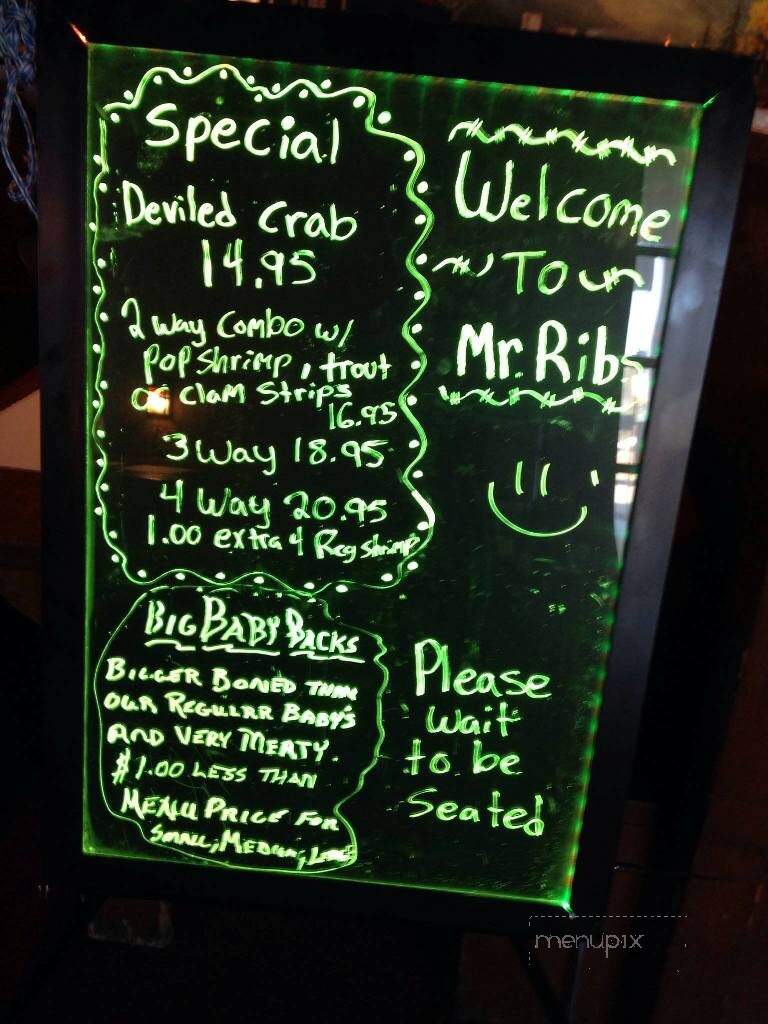 Special
Deviled Crab
14.95
2 Way Combo w/
Pop Shrimp, trout
or Clam Strips
16.95
3 Way 18.95
4 Way 20.95
1.00 extra 4 Reg Shrimp
Big Baby Backs
Bigger Boned Than
our Regular Baby's
And Very Meaty.
$1.00 Less Than
Menu Price For
Small, Medium, Large
Welcome
To
Mr. Ribs
Please
Wait
to be
Seated
menupix